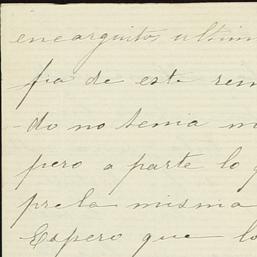 encarguito, ultim
fia de este rem
do no tema m
pero a parte lo q
pre la misma
Espero que lo